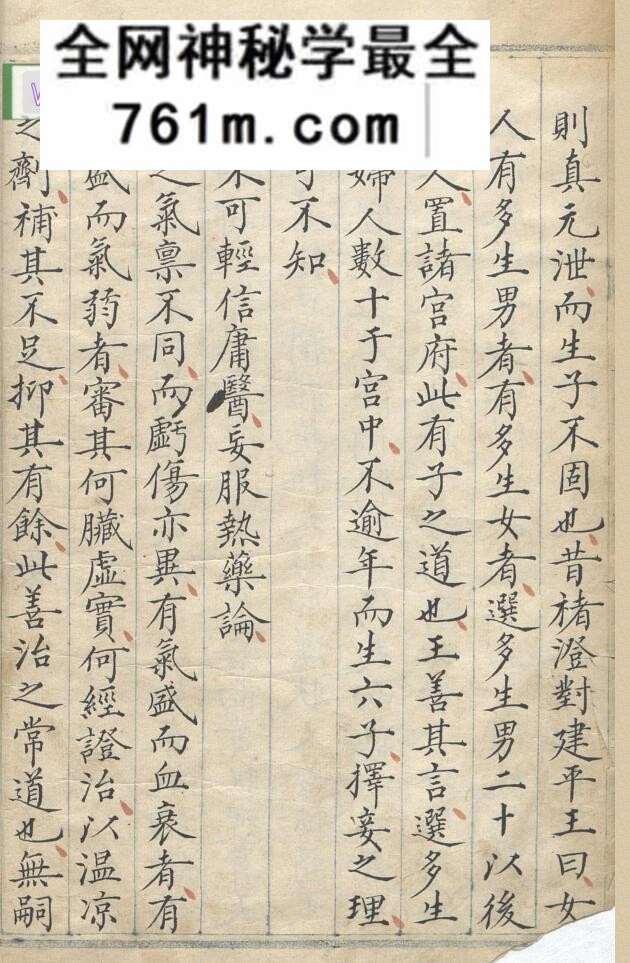 全网神秘学最全
761m.com
則真元泄而生子不固也昔褚澄對建平王曰女
人有多生男者有多生女者選多生男二十以後
人置諸宮府此有子之道也王善其言選多生
婦人數十于宮中不逾年而生六子擇妾之理
不知
不可輕信庸醫妄服熱藥論
之氣禀不同而虧傷亦異有氣盛而血衰者有
盛而氣弱者審其何臟虛實何經證治以温凉
之劑補其不足抑其有餘此善治之常道也無嗣